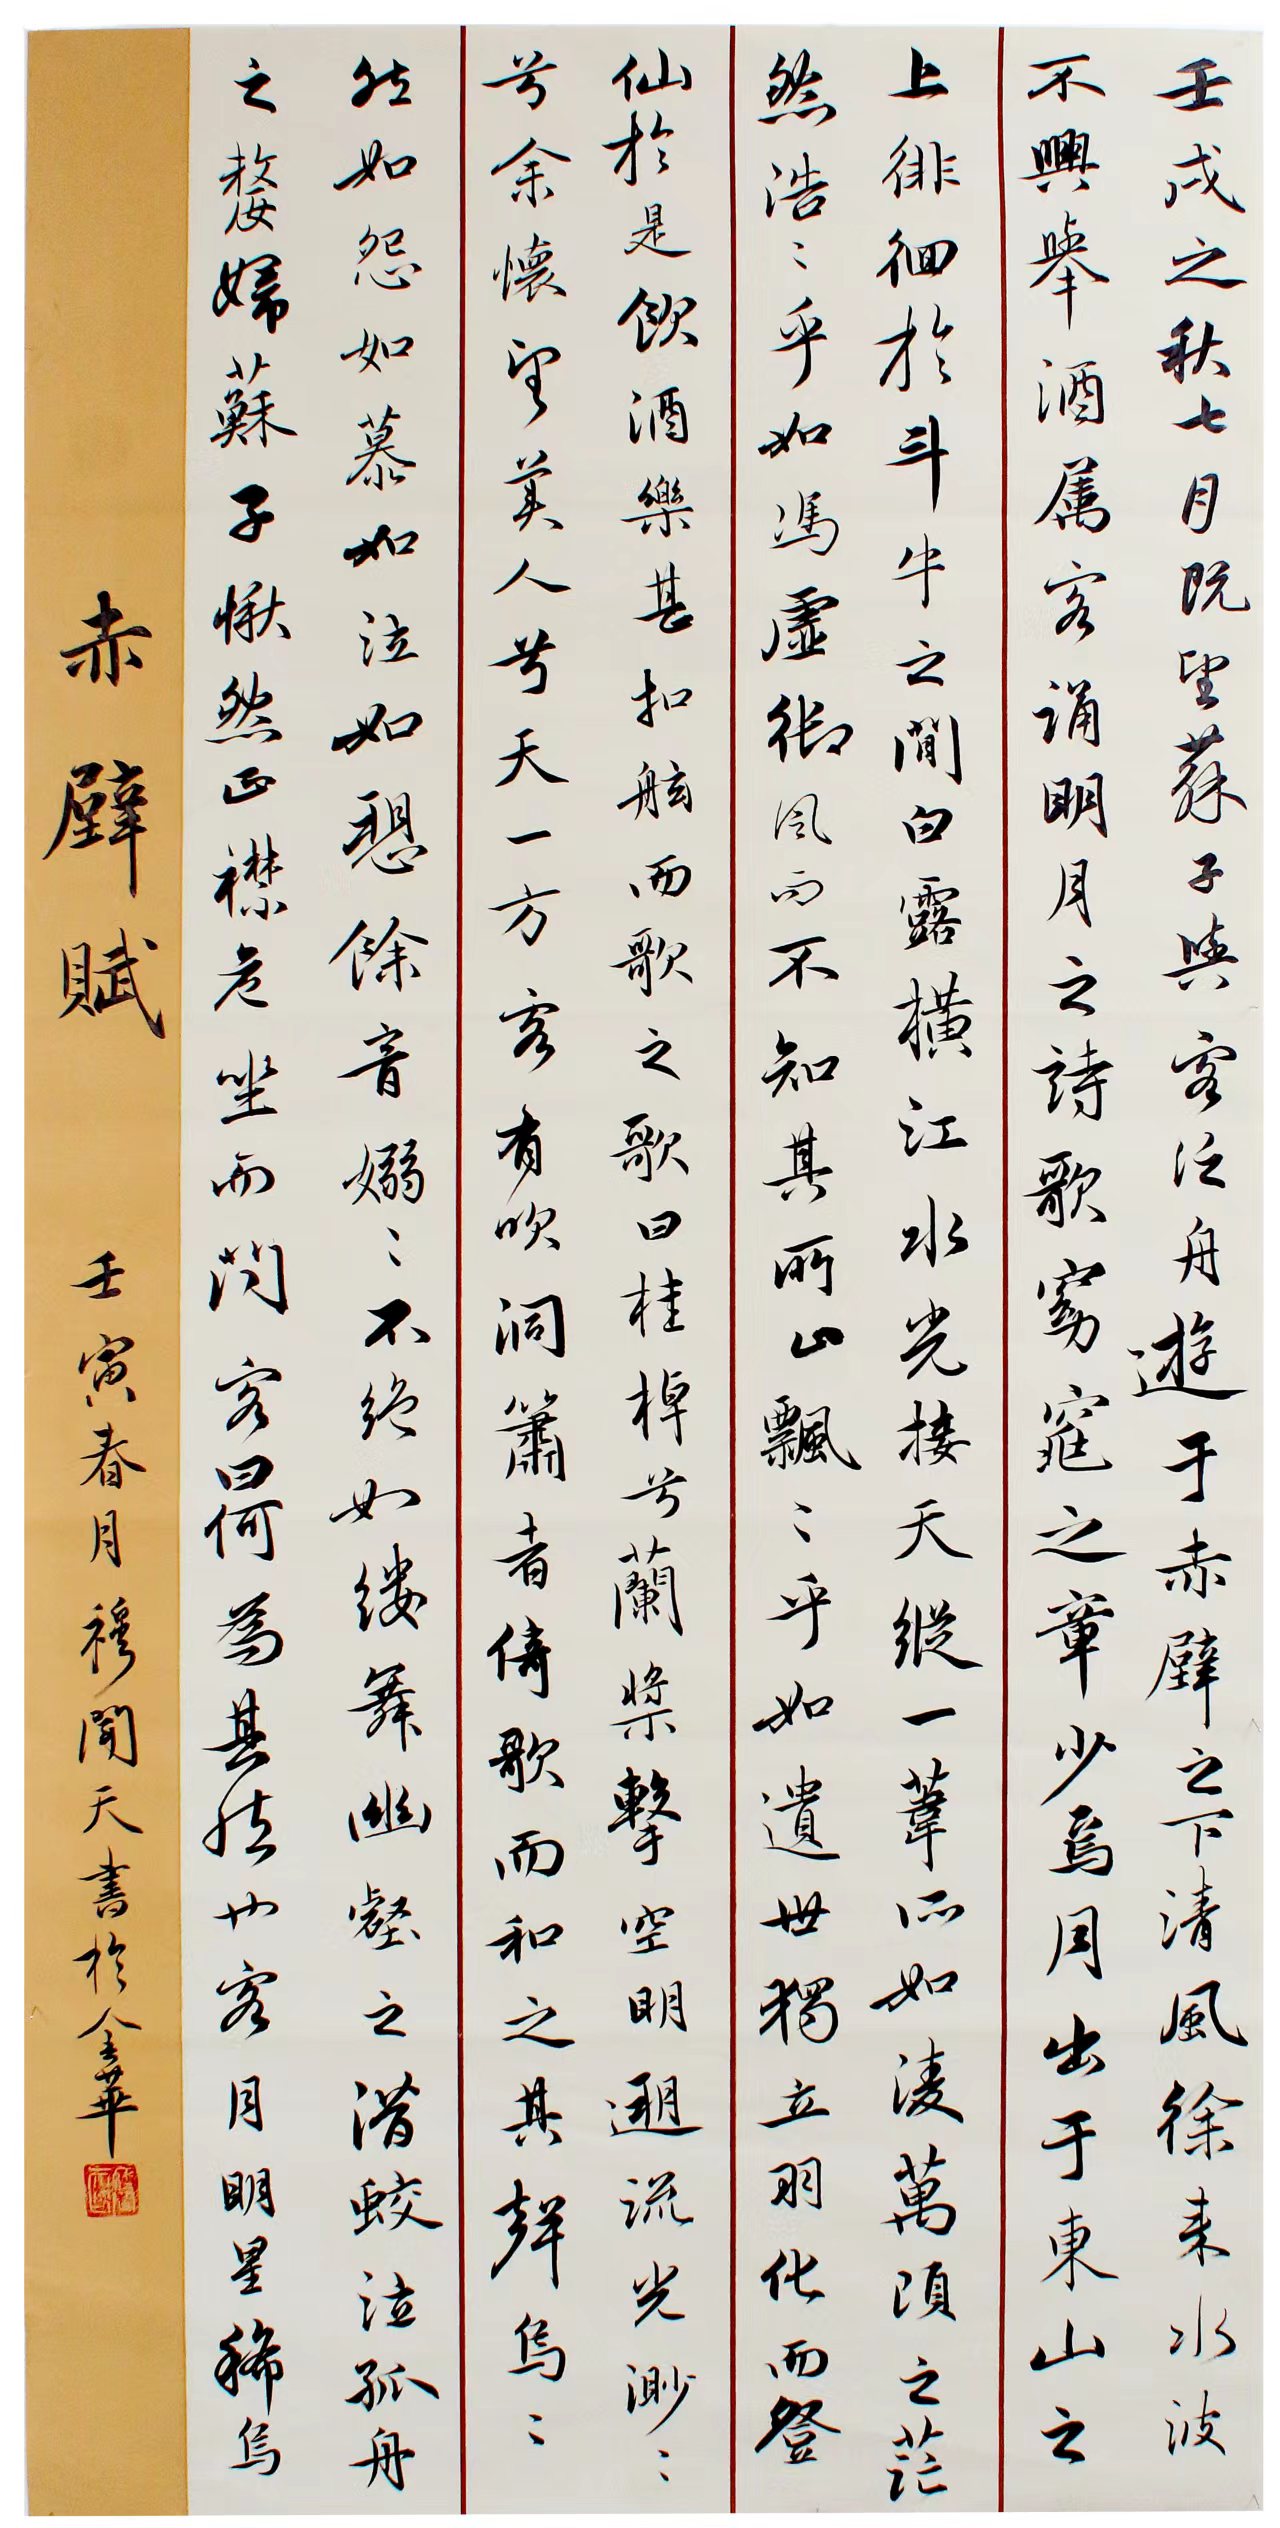 壬戌之秋七月既望蘇子與客泛舟遊于赤壁之下清風徐来水波
不興舉酒属客誦明月之詩歌窈窕之章少焉月出于東山之
上徘徊於斗牛之間白露横江水光接天縱一葦所如淩萬頃之茫
然浩〻乎如馮虚御風而不知其所止飄〻乎如遺世獨立羽化而登
仙於是飲酒樂甚扣舷而歌之歌曰桂棹兮蘭槳擊空明遡流光渺〻
兮余懷望美人兮天一方客有吹洞簫者倚歌而和之其聲烏〻
然如怨如慕如泣如愬餘音嫋〻不絶如縷舞幽壑之潜蛟泣孤舟
之嫠婦蘇子愀然正襟危坐而問客曰何為其然也客月明星稀烏
赤壁賦
壬寅春月穆聞天書於金華